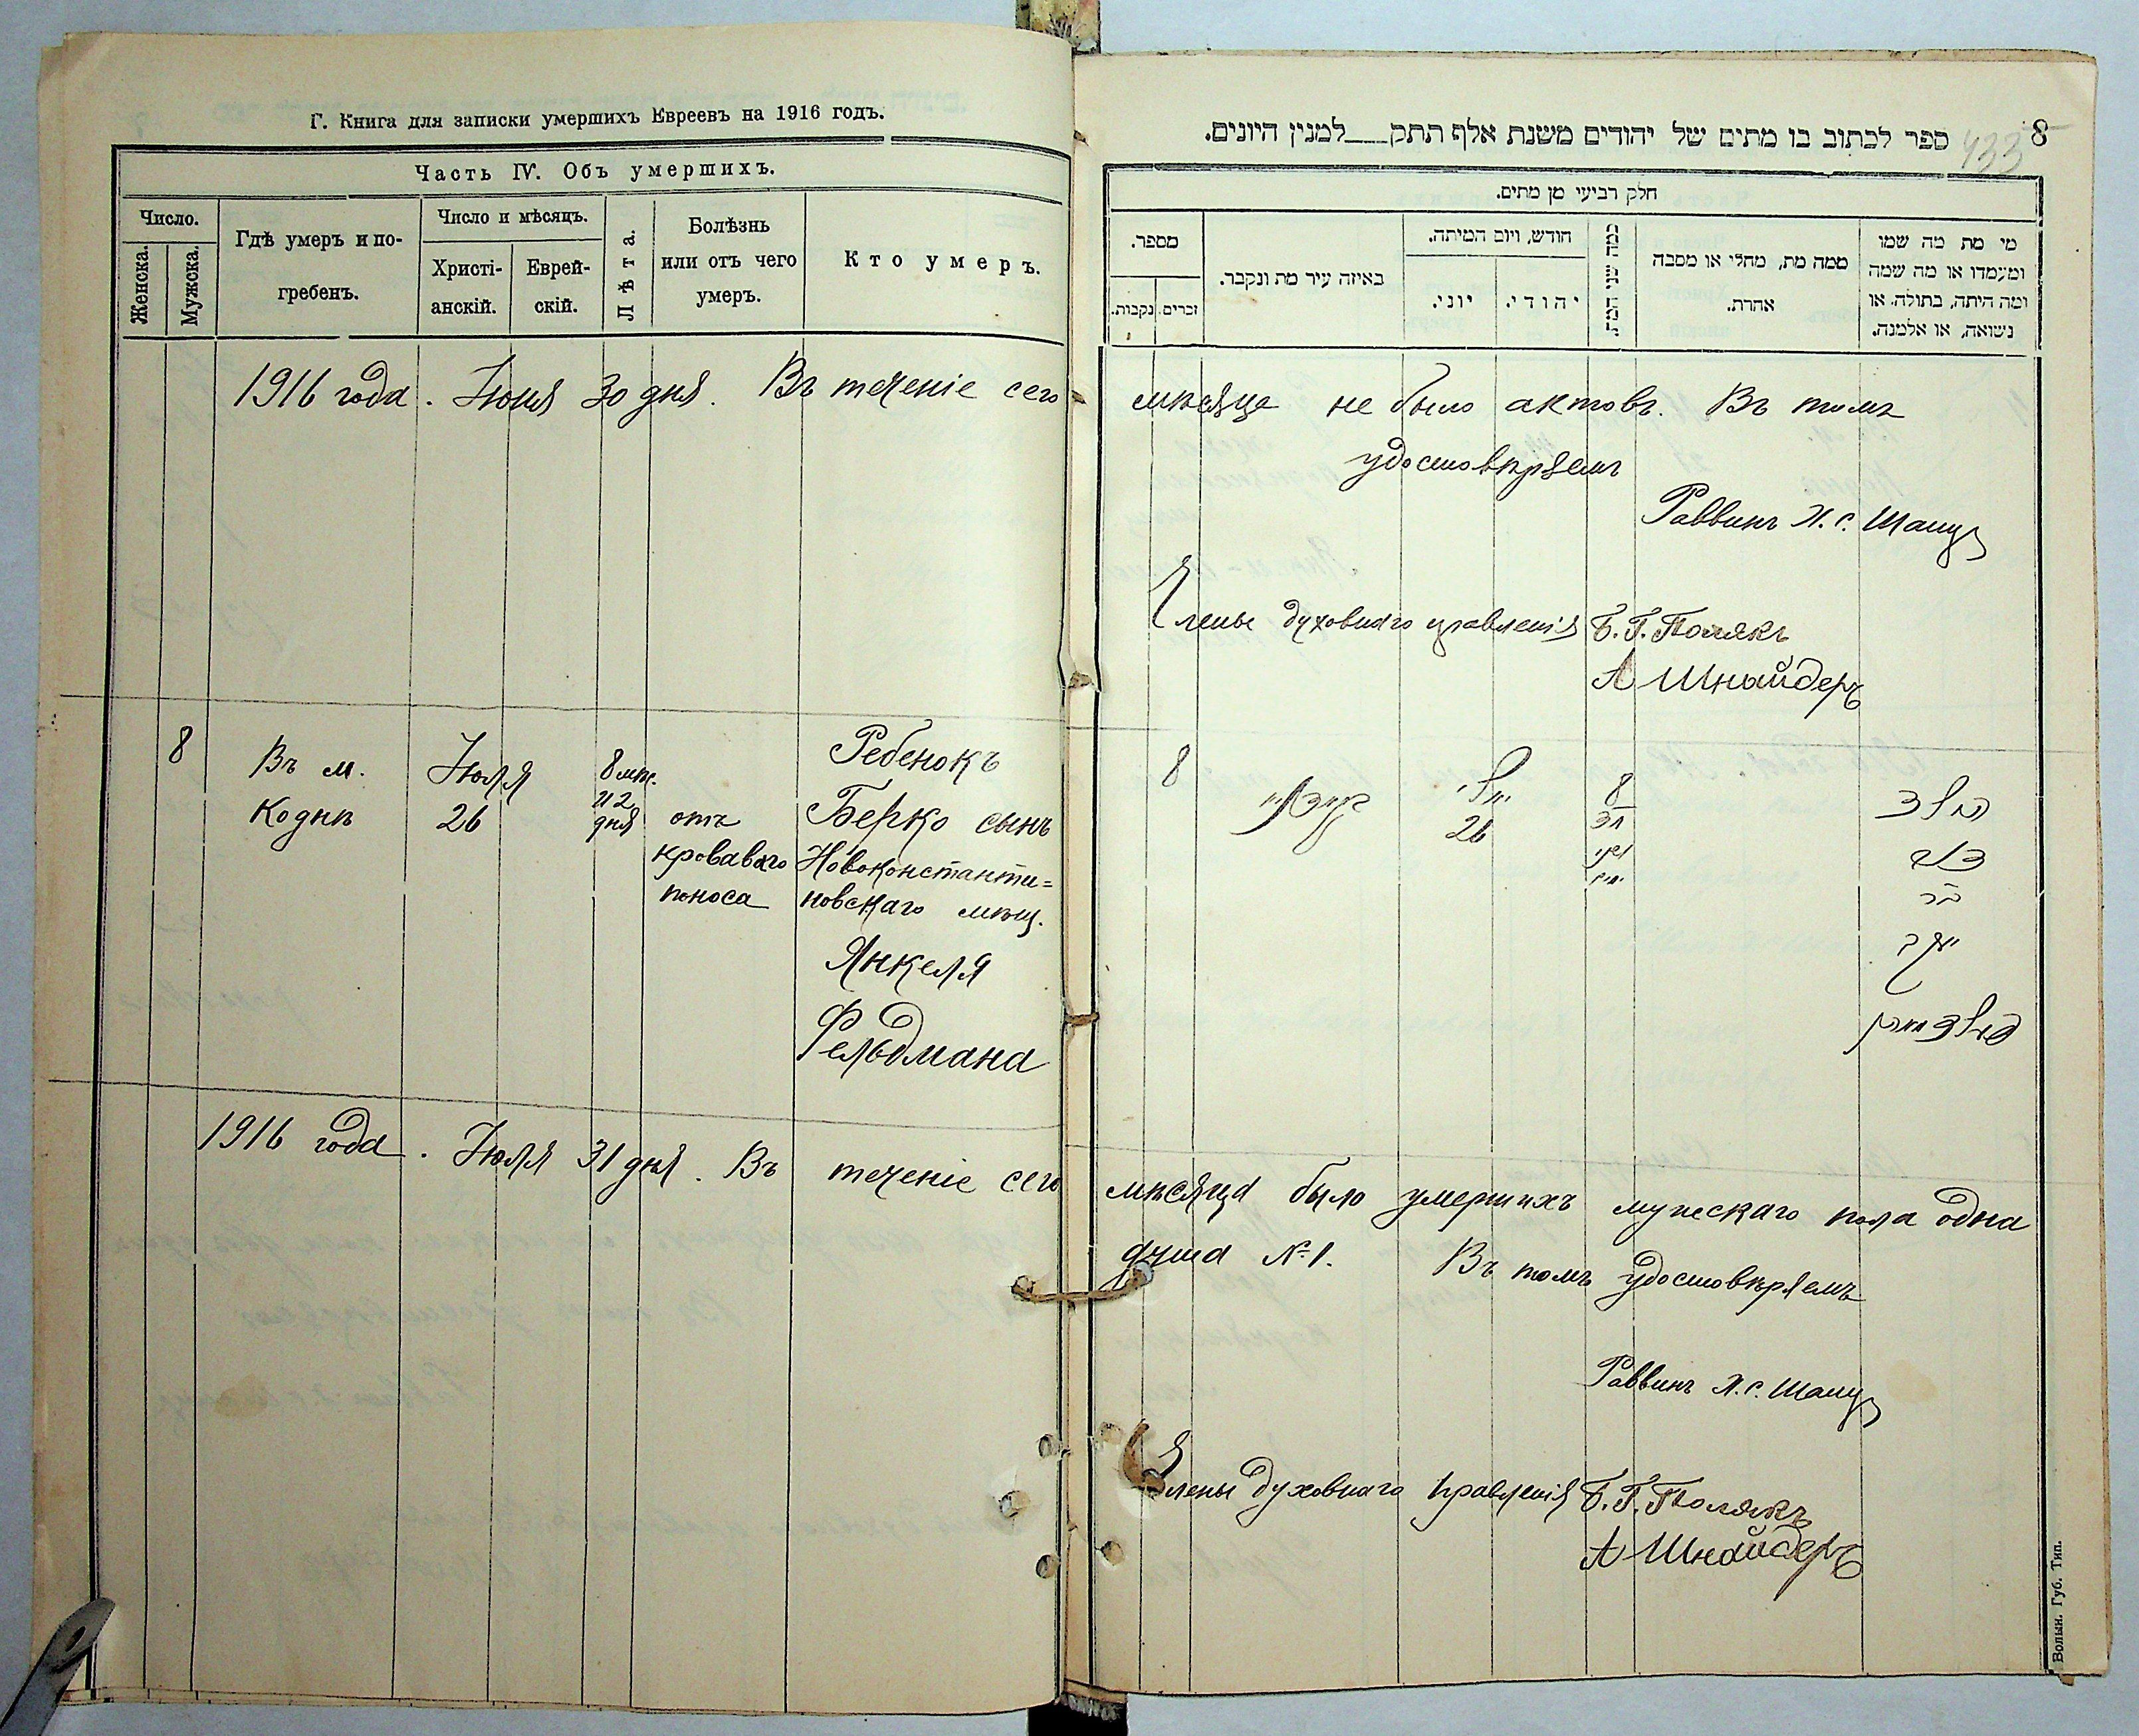 Г. Книга для записки умершихъ Евреевъ на 1916 годъ.
Часть IV. Объ умершихъ.
Число.
Женска.
Мужска.
Гдѣ умеръ и по-
гребенъ.
Число и мѣсяцъ.
Христі-
анскій.
Еврей-
скій.
Лѣта.
Болѣзнь
или отъ чего
умеръ.
Кто умеръ.
1916 года. Іюня 30 дня. Въ теченіе сего
8
Въ м.
Кодня
Іюля
26
8 мѣс.
и 2
дня
отъ
кроваваго
поноса
Ребенокъ
Берко сынъ
Новоконстанти=
новскаго мѣщ.
Янкеля
Фельдмана
1916 года. Іюля 31 дня. Въ теченіе сего
8
433
ספר לכתוב בו מתים של יהודים משנת אלף תתק___למנין היונים.
חלק רביעי מן מתים.
מספר.
נקבות.
זכרים.
באיזה עיר מת ונקבר.
חודש, ויום המיתה.
יוני.
יהודי.
כמה שני המת.
ממה מת, מחלי או מסבה
אחרת.
מי מת מה שמו
ומעמדו או מה שמה
ומה היתה, בתולה, או
נשואה, או אלמנה.
мѣсяца не было актовъ. Въ томъ
удостовѣряемъ
Раввинъ Х. С. Шамуз
Члены духовнаго правленія Б. Г. Полякъ
А Шнайдеръ
8
יולי
26
8
הילד
בער
בר
יאנקל
פעלדמאן
мѣсяца было умершихъ мужескаго пола одна
душа № 1. Въ томъ удостовѣряемъ
Раввинъ Х. С. Шамуз
Члены духовнаго правленія Б. Г. Полякъ
А Шнайдеръ
Волын. Губ. Тип.